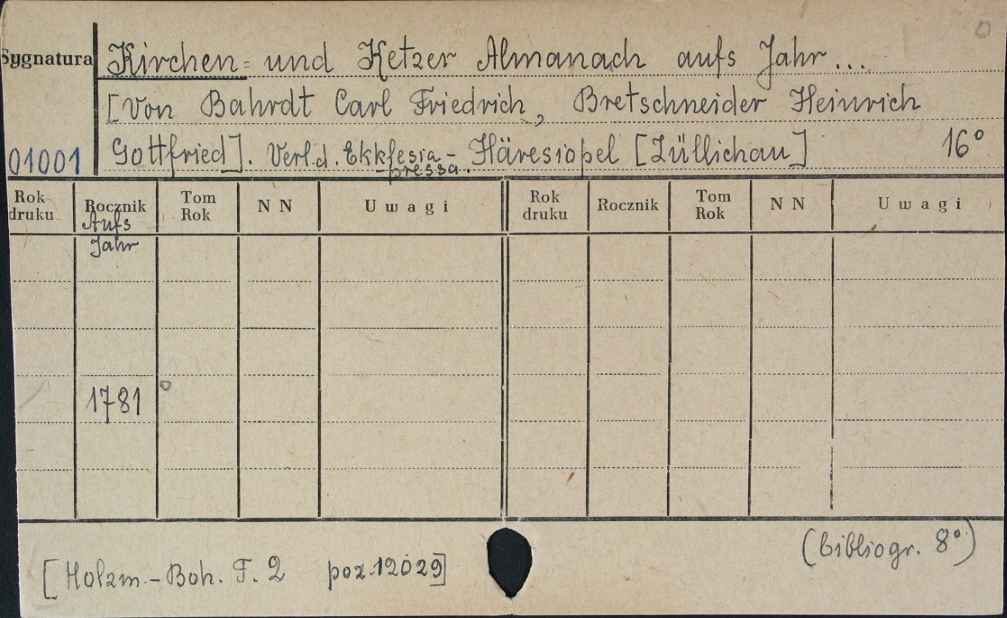 Sygnatura
Kirchen= und Ketzer Almanach aufs Jahr...
[Von Bahrdt Carl Friedrich, Bretschneider Heinrich
01001
Gottfried]. Verl.d. Ekklesia-pressa. Häresiopel [Züllichau] 16°
Rok druku Rocznik Tom Rok N N Uwagi Rok druku Rocznik Tom Rok N N Uwagi
Aufs
Jahr
1781 °
(bibliogr. 8°)
[Holzm.-Boh. T. 2 poz.12029]